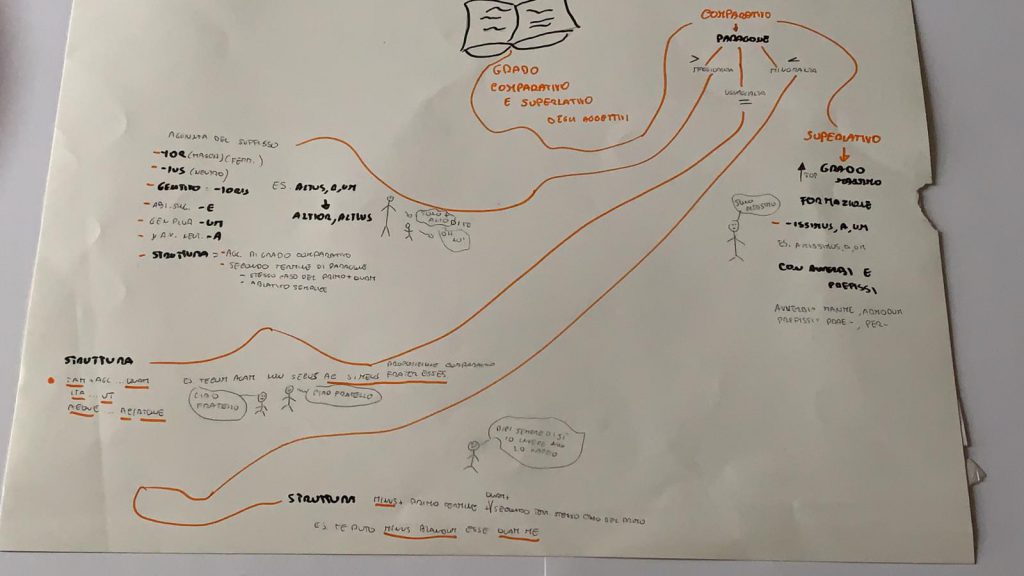 GRADO
COMPARATIVO
E SUPERLATIVO
DEGLI AGGETTIVI
COMPARATIVO
PARAGONE
> <
MAGGIORANZA MINORANZA
UGUAGLIANZA
=
SUPERLATIVO
TOP GRADO
MASSIMO
FORMAZIONE
- -ISSIMUS, A, UM
ES. ALTISSIMUS, A, UM
CON AVVERBI E
PREFISSI
AVVERBI: MAXIME, ADMODUM
PREFISSI: PRAE-, PER-
SONO ALTISSIMO
AGGIUNTA DEL SUFFISSO
- -IOR (MASCH.) (FEMM.)
- -IUS (NEUTRO)
- GENITIVO: -IORIS
- ABL. SING. -E
- GEN PLUR -UM
- -A
- STRUTTURA = - AGG. DI GRADO COMPARATIVO
- SECONDO TERMINE DI PARAGONE
- STESSO CASO DEL PRIMO + QUAM
- ABLATIVO SEMPLICE
ES. ALTUS, A, UM
ALTIOR, ALTIUS
SONO + ALTO DI TE
OH NO!
STRUTTURA
TAM + AGG. ... QUAM
ITA ... UT
AEQUE ... AC/ATQUE
PROPOSIZIONE COMPARATIVA
ES TECUM AGAM NON SECUS AC SI MEUS FRATER ESSES
CIAO
FRATELLO
CIAO FRATELLO
DIRÒ SEMPRE DI SÌ
STRUTTURA MINUS + PRIMO TERMINE QUAM + SECONDO TERM. STESSO CASO DEL PRIMO
ES. TE PUTO MINUS BLANDUM ESSE QUAM ME